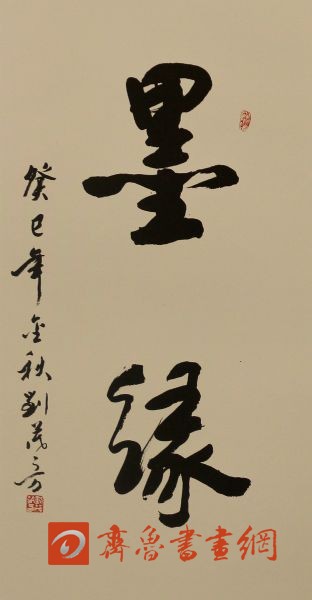 墨缘
癸巳年金秋刘茂方
齊魯書畫網